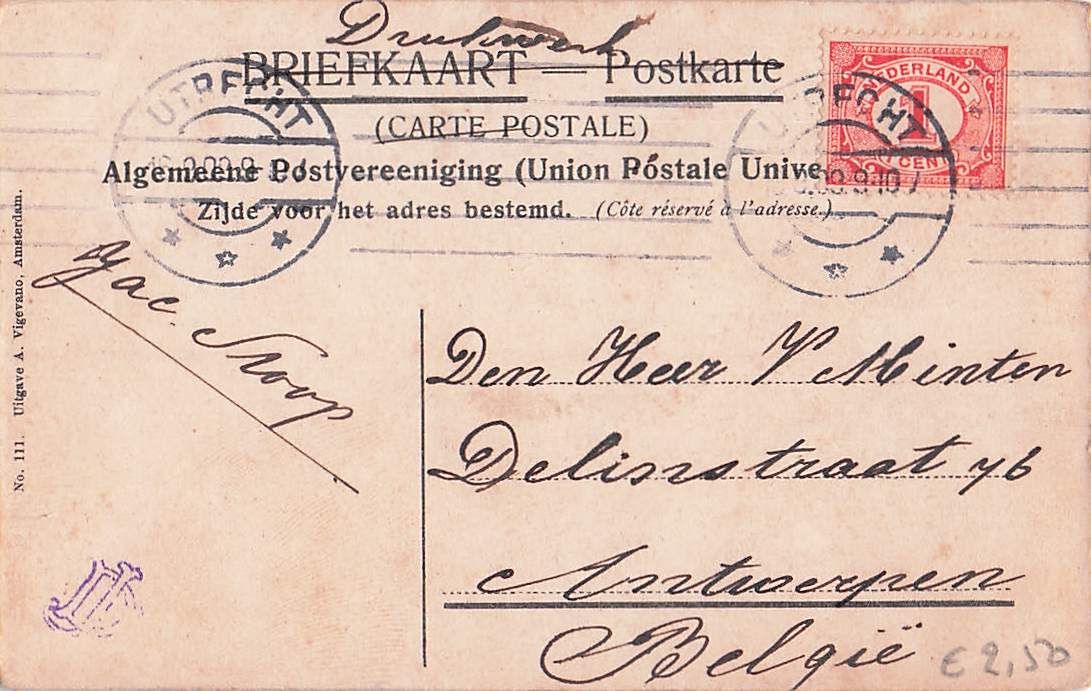 Drukwerk
BRIEFKAART — Postkarte
(CARTE POSTALE)
Algemeene Postvereeniging (Union Postale Unive
Zijde voor het adres bestemd. (Côte réservé à l'adresse.)
UTRECHT
UTRECHT
NEDERLAND
1
1 CENT
No. 111. Uitgave A. Vigevano, Amsterdam.
Jac. Stoop
Den Heer V Minten
Delinstraat 76
Antwerpen
België
€ 2,50